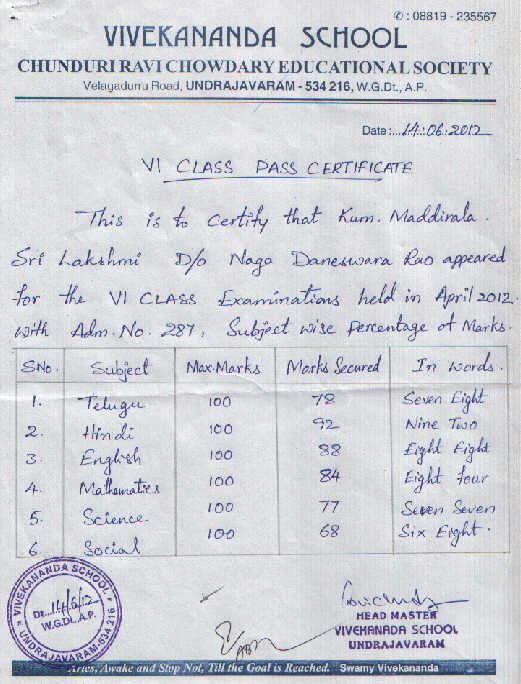 ✆ : 08819 - 235567
VIVEKANANDA SCHOOL
CHUNDURI RAVI CHOWDARY EDUCATIONAL SOCIETY
Velagadurru Road, UNDRAJAVARAM - 534 216, W.G.Dt., A.P.
Date:...14.:06.:2012
VI CLASS PASS CERTIFICATE
This is to certify that Kum. Maddirala.
Sri Lakshmi D/o Naga Daneswara Rao appeared
for the VI CLASS Examinations held in April 2012.
with Adm. No. 287, Subject wise percentage of Marks.
SNo. Subject Max.Marks Marks Secured In words.
1. Telugu 100 78 Seven Eight
2. Hindi 100 92 Nine Two
3. English 100 88 Eight Eight
4. Mathematics 100 84 Eight four
5. Science. 100 77 Seven Seven
6. Social 100 68 Six Eight.
VIVEKANANDA SCHOOL
Dt...14/6/12
W.G.Dt., A.P.
UNDRAJAVARAM 534 216
HEAD MASTER
VIVEKANADA SCHOOL
UNDRAJAVARAM
Aries, Awake and Stop Not, Till the Goal is Reached. Swamy Vivekananda